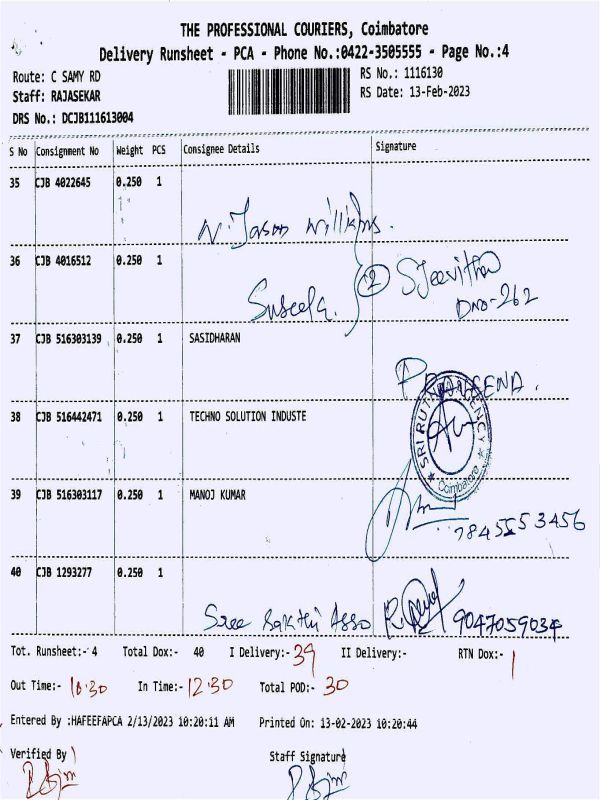 THE PROFESSIONAL COURIERS, Coimbatore
Delivery Runsheet - PCA - Phone No.:0422-3505555 - Page No.:4
Route: C SAMY RD RS No.: 1116130
Staff: RAJASEKAR RS Date: 13-Feb-2023
DRS No.: DCJB111613004
S No Consignment No Weight PCS Consignee Details Signature
35 CJB 4022645 0.250 1
N. Jason Williams.
36 CJB 4016512 0.250 1
Suseela. 2 S Jeevitha
DNO-262
37 CJB 516303139 0.250 1 SASIDHARAN
38 CJB 516442471 0.250 1 TECHNO SOLUTION INDUSTE
SRI RUTH AGENCY
Coimbatore
39 CJB 516303117 0.250 1 MANOJ KUMAR
7845553456
40 CJB 1293277 0.250 1
Sree Sakthi Asso 9047059034
Tot. Runsheet:- 4 Total Dox:- 40 I Delivery:- 39 II Delivery:- RTN Dox:- 1
Out Time:- 10.30 In Time:- 12.30 Total POD:- 30
Entered By :HAFEEFAPCA 2/13/2023 10:20:11 AM Printed On: 13-02-2023 10:20:44
Verified By Staff Signature